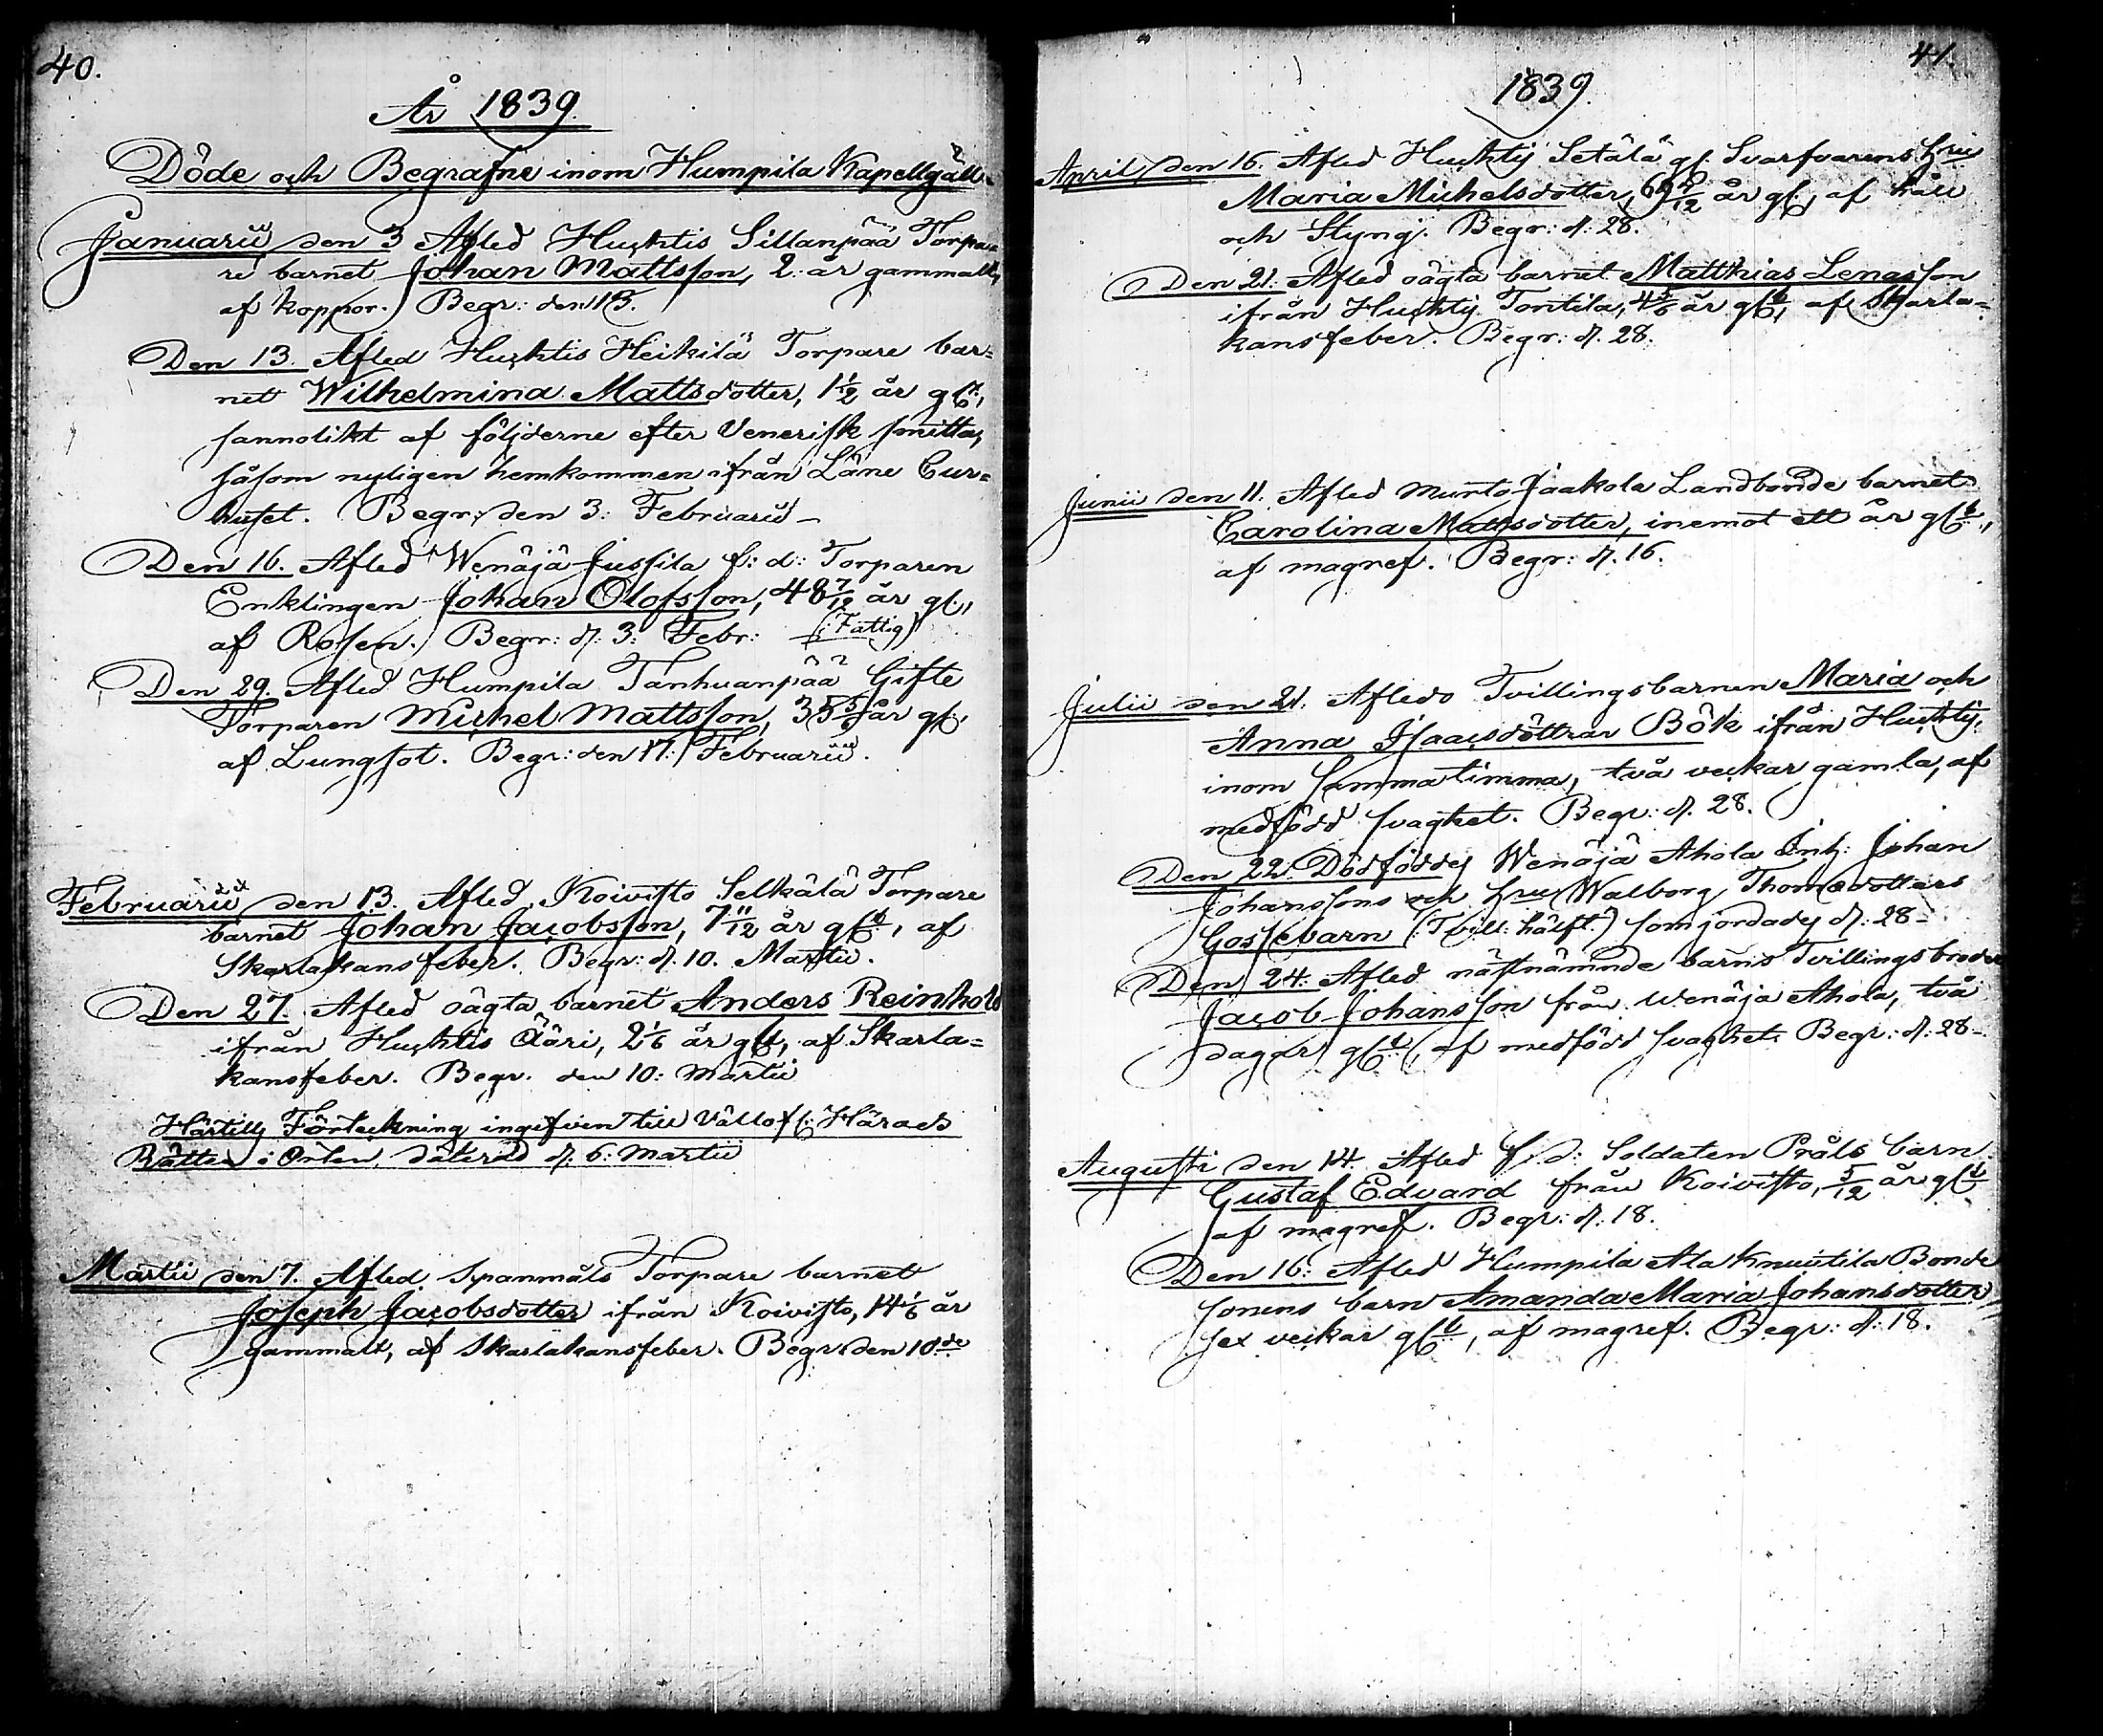 40.
År 1839.
Döde och Begrafne inom Humpila Kapellgäll
Januarii den 3 Afled Huchtis Sillanpää Torpa=
re barnet Johan Mattsson, 2. år gammalt,
af koppor. Begr: den 13.
Den 13. Afled Huchtis Heikilä Torpare bar=
net Wilhelmina Mattsdotter, 1 1/2 år glt.,
sannolikt af följderne efter Venerisk smitta,
såsom nyligen hemkommen ifrån Läne Cur=
huset. Begr: den 3: Februarii –
Den 16. Afled Wenäjä Jussila f: d: Torparen
Enklingen Johan Olofsson, 48 7/12 år gl.,
af Rosen. Begr: d: 3: Febr: (: Fattig)
Den 29. Afled Humpila Tanhuanpää Gifte
Torparen Michel Mattsson, 35 5/6 år gl.
af Lungsot. Begr: den 17: Februarii.
Februarii den 13. Afled Koivisto Selkälä Torpare
barnet Johan Jacobsson, 7 11/12 år glt, af
Skarlakansfeber. Begr: d. 10. Martii.
Den 27. Afled oägta barnet Anders Reinhold
ifrån Huchtis Ääri, 2 1/6 år glt, af Skarla=
kansfeber. Begr. den 10: Martii
Härtill Förteckning ingifven till Vällofl: Härads
Rätten i Orten, daterad d: 6: Martii
Martii den 7. Afled Spanmåls Torpare barnet
Joseph Jacobsdotter ifrån Koivisto, 14 1/6 år
gammalt, af Skarlakansfeber. Begr. den 10de
41.
1839.
April den 16. Afled Huchtis Setälä gl. Svarfvarens Hru
Maria Michelsdotter, 69 /12 år gl., af håll
och Styng. Begr: d: 28.
Den 21: Afled oägta barnet Matthias Lenasson
ifrån Huchtis Tontila, 4 5/6 år glt, af Skarla=
kansfeber. Begr: d. 28.
Junii den 11. Afled Murto Jaakola Landbonde barnet
Carolina Mattsdotter, inemot ett år glt.,
af magref. Begr: d. 16.
Julii den 21. Afledo Tvillingsbarnen Maria och
Anna Isaacsdöttrar Böök ifrån Huchtis,
inom samma timma, två veckar gamla, af
medfödd svaghet. Begr: d. 28.
Den 22: Dödföddes Wenäjä Ahola Inh: Johan
Johanssons och Hru Walborg Thomædotters
Gossebarn (: Tvill: hälft.) som jordades d: 28–
Den 24: Afled nästnämnde barns Tvillingsbroder
Jacob Johansson från Wenäjä Ahola, två
dagar glt, af medfödd svaghet. Begr: d: 28–
Augusti den 14. Afled f: d: Soldaten Pråls barn
Gustaf Edvard från Koivisto, 5/12 år glt
af magref. Begr: d: 18.
Den 16: Afled Humpila Ala Knuutila Bonde
sonens barn Amanda Maria Johansdotter,
sex veckar glt., af magref. Begr: d: 18.